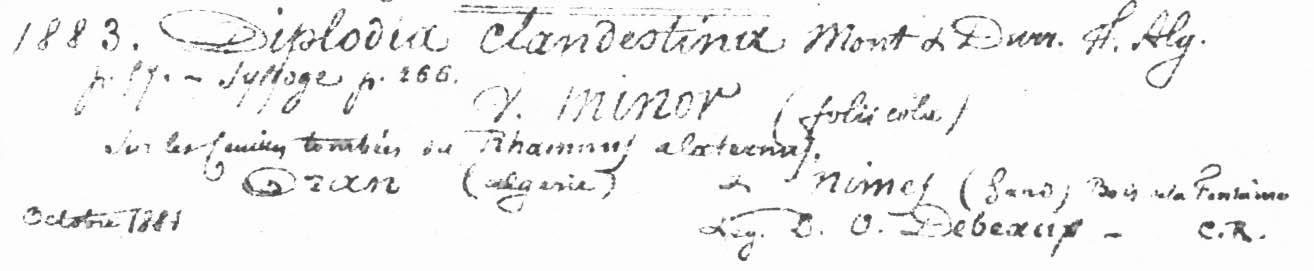 1883. Diplodia clandestina Mont & Durr. Fl. Alg.
p. 57. – Sylloge p. 266.
V. minor (foliicola)
Sur les feuilles tombées du Rhamnus alaternus.
Oran (algérie) & Nimes (Gard) Bois de la Fontaine
Octobre 1881 Leg. D. O. Debeaux – C.R.